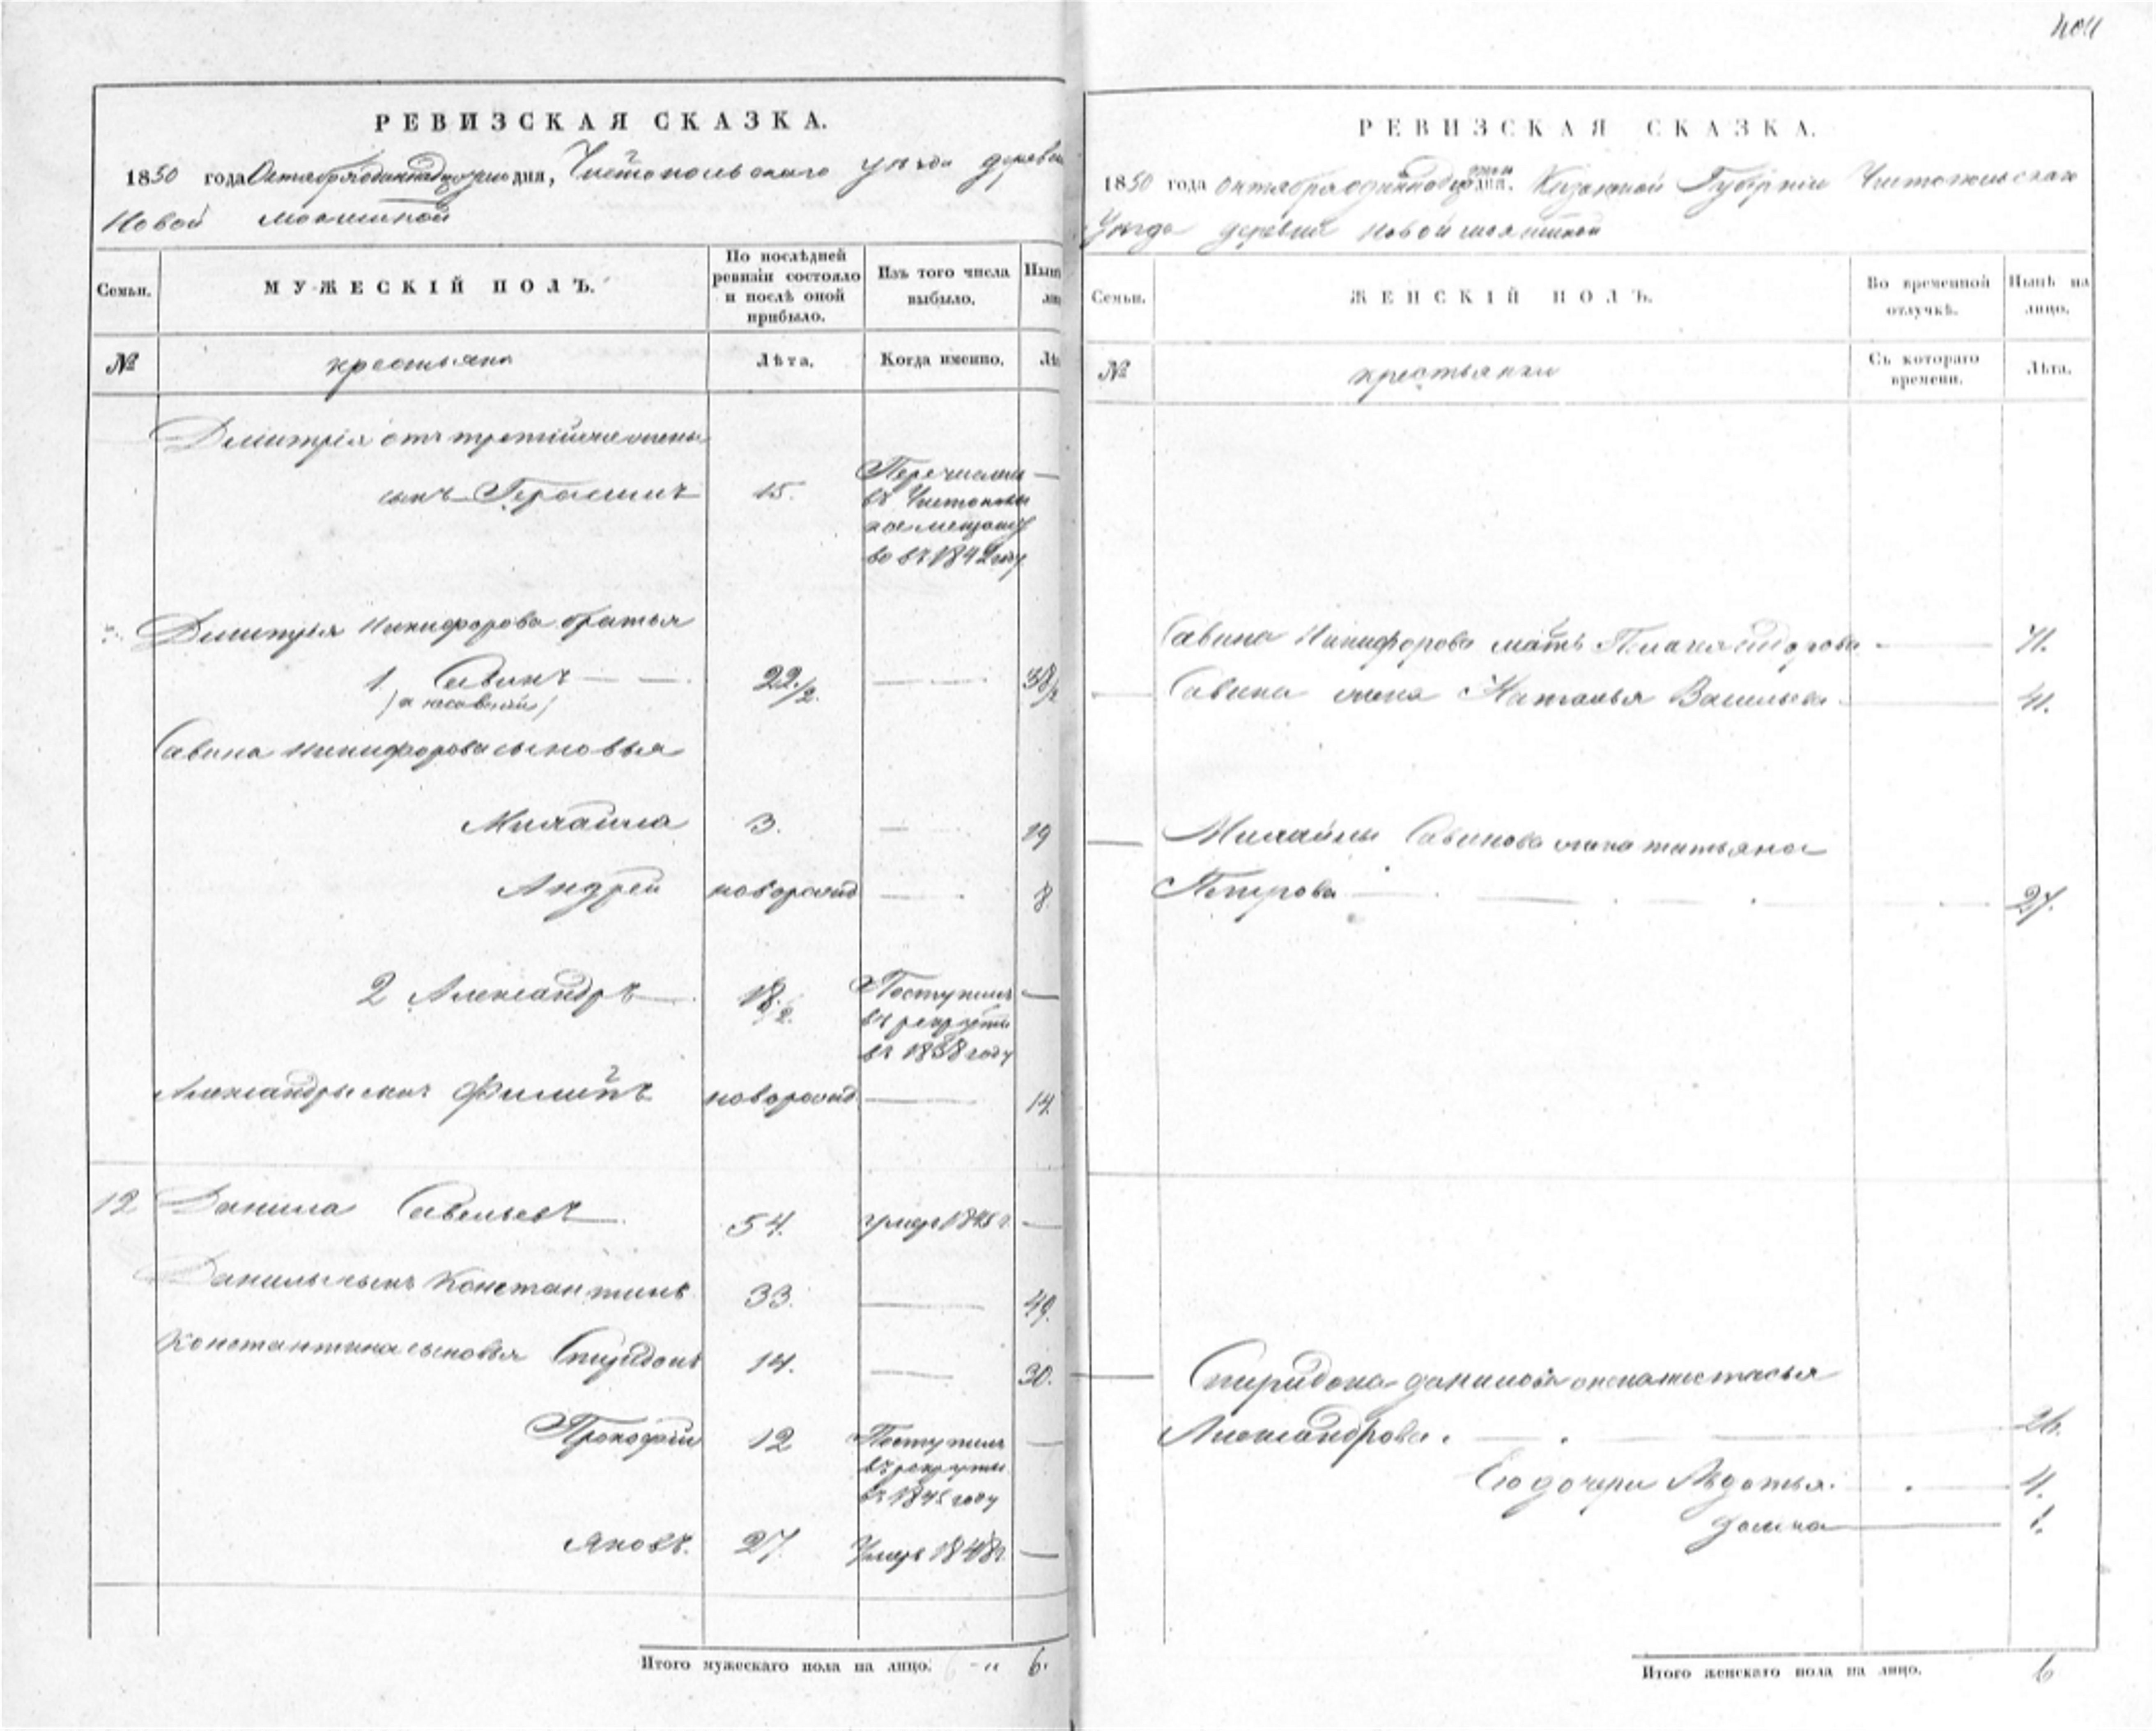 404
РЕВИЗСКАЯ СКАЗКА.
1850 года Октября одиннадцатого дня, Чистопольскаго уѣзда деревни
Новой
Семьи.
МУЖЕСКІЙ ПОЛЪ.
По послѣдней ревизіи состояло и послѣ оной прибыло.
Изъ того числа выбыло.
№
крестьяне
Лѣта.
Когда именно.
Дмитрія отъ третьей жены
сынъ Герасимъ 15. Перечисленъ —
въ Чистополь
ское мещанст
во въ 1842 году
Дмитрія Никифорова братья
1. Савинъ — — 22 1/2. — 38/2
Савина Никифорова сыновья
Михаила 3. — 19
Андрей новорожд — 8.
2 Александръ — 18 1/2. Поступилъ —
въ рекруты
въ 1838 году
Александры сынъ Филипъ новорожд — 14.
12 Данила Савельевъ 54. умер 1845 г. —
Данилы сынъ Константинъ 33. — 49.
Константина сыновья Спиридонъ 14. — 30.
Прокофій 12 Поступилъ —
въ рекруты
въ 1845 году
Яковъ. 27. Умеръ 1848 г. —
Итого мужескаго пола на лицо. 6.
РЕВИЗСКАЯ СКАЗКА.
1850 года октября одиннадцатого дня. Казанской Губерніи Чистопольскаго
Уѣзда деревни Новой
Семьи.
ЖЕНСКІЙ ПОЛЪ.
Во временной отлучкѣ.
Нынѣ на лицо.
№
крестьянки
Съ котораго времени.
Лѣта.
Савина Никифорова мать Пелагея Сидорова — 71.
Савина жена Наталья Васильева — 41.
Михайлы Савинова жена татьяна
Петрова — 27.
Спиридона данилова жена настасья
Александрова. — 26.
Ею дочери Авдотья. — 4.
домна — 1.
Итого женскаго пола на лицо. 6